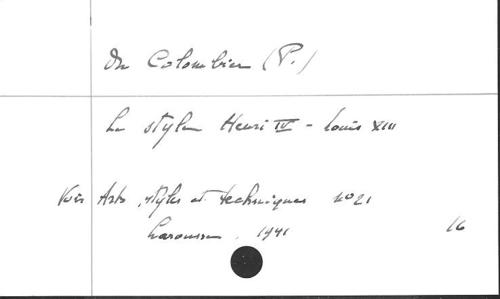 Du Colombier (P.)
Le style Henri IV - Louis XIII
Voir Arts, styles et techniques no 21
Larousse, 1941
16